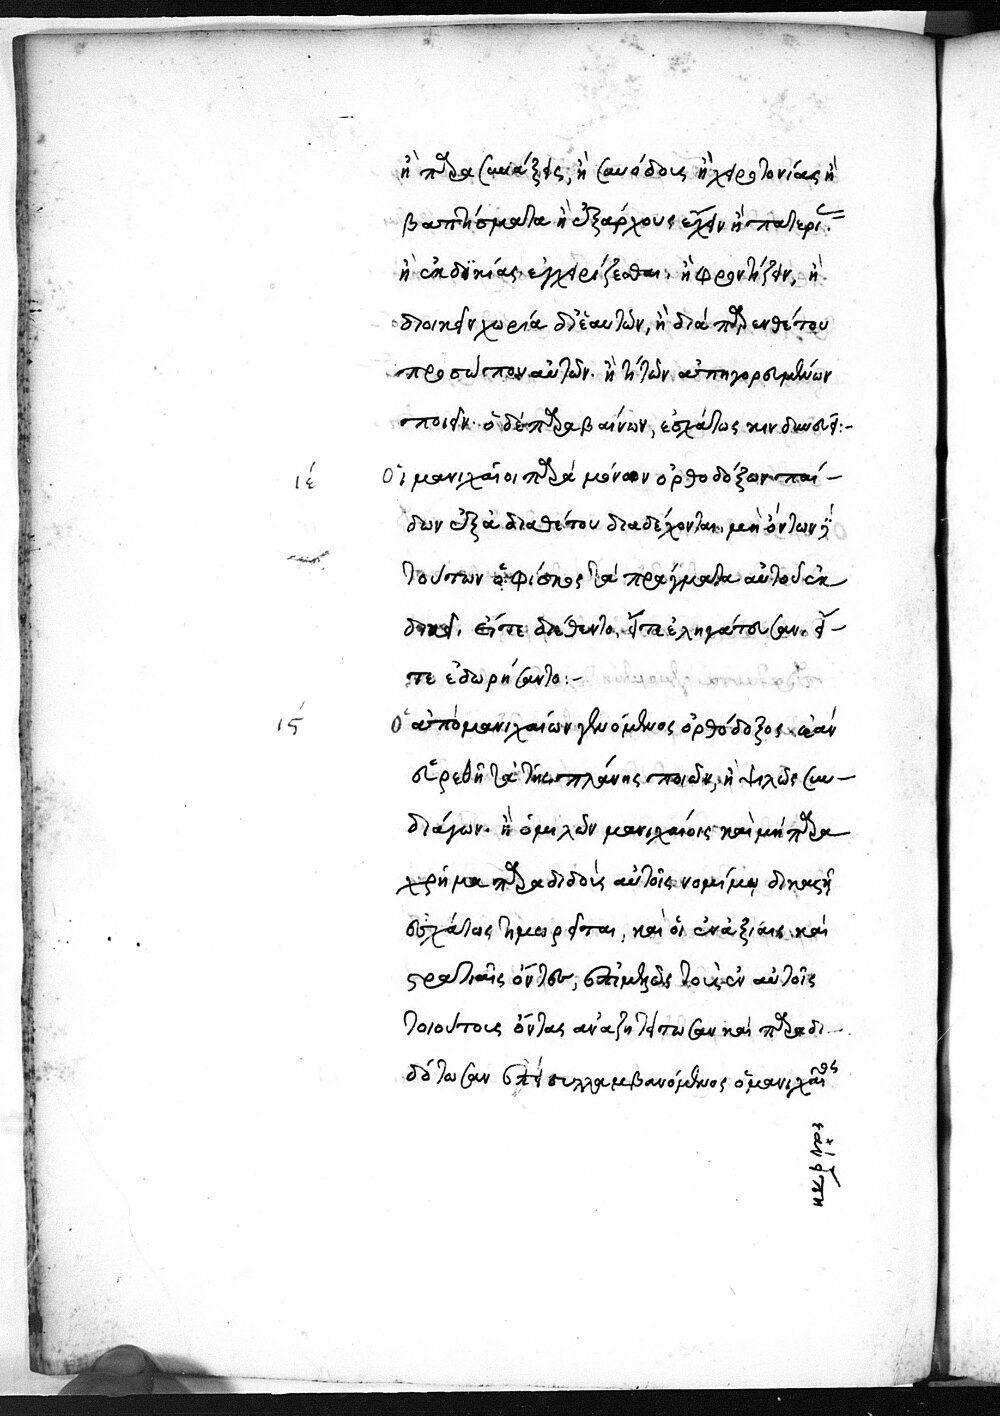 ἢ παρασυνάξεις, ἢ συνόδους ἢ χειροτονίας ἢ
βαπτίσματα ἢ ἐξάρχους ἔχειν ἢ πατερί
ἢ ἐκδικίας ἐγχειρίζεσθαι. ἢ φροντίζειν, ἢ
διοικεῖν χωρία δι' ἑαυτῶν, ἢ διὰ παρενθέτου
προσώπου αὐτῶν. ἤ τι τῶν ἀπηγορευμένων
ποιεῖν. ὁ δὲ παραβαίνων, ἐσχάτως κινδυνεύει:-
ιέ Οἱ μανιχαῖοι παρὰ μόνων ὀρθοδόξων παί-
δων ἐξ ἀδιαθέτου διαδέχονται. μὴ ὄντων δὲ
τούτων ὁ φίσκος τὰ πράγματα αὐτοῦ ἐκ
δικεῖ. εἴτε διέθεντο, εἴτε ἐληγάτευσαν. εἴ-
τε ἐδωρήσαντο:-
ις Ὁ ἀπὸ μανιχαίων γενόμενος ὀρθόδοξος. ἐὰν
εὑρεθῇ τὰ τῆς πλάνης ποιῶν, ἢ ψιλῶς συν-
διάγων. ἢ ὁμιλῶν μανιχαίοις καὶ μὴ παρα
χρῆμα παραδιδοὺς αὐτοὺς νομίμῳ δικαστῇ
ἐσχάτως τιμωρεῖται, καὶ οἱ ἐν ἀξίαις καὶ
στρατιαῖς ὄντες, ἐπιμελῶς τοὺς ἐν αὐτοῖς
τοιούτους ὄντας ἀναζητείτωσαν καὶ παραδι-
δότωσαν ἐπεὶ συλλαμβανόμενος ὁ μανιχαῖος